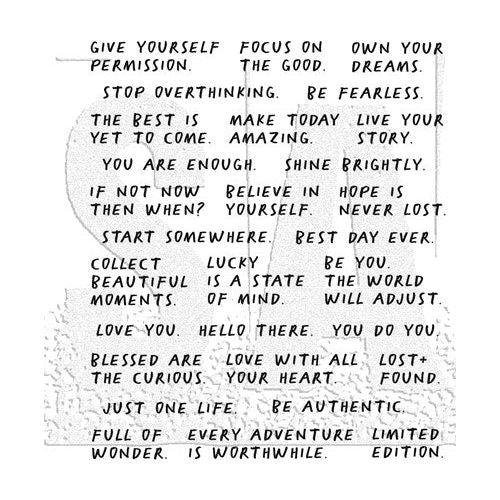 GIVE YOURSELF FOCUS ON OWN YOUR
PERMISSION. THE GOOD. DREAMS.
STOP OVERTHINKING. BE FEARLESS.
THE BEST IS MAKE TODAY LIVE YOUR
YET TO COME. AMAZING. STORY.
YOU ARE ENOUGH. SHINE BRIGHTLY.
IF NOT NOW BELIEVE IN HOPE IS
THEN WHEN? YOURSELF. NEVER LOST.
START SOMEWHERE. BEST DAY EVER.
COLLECT LUCKY BE YOU.
BEAUTIFUL IS A STATE THE WORLD
MOMENTS. OF MIND. WILL ADJUST.
LOVE YOU. HELLO THERE. YOU DO YOU.
BLESSED ARE LOVE WITH ALL LOST+
THE CURIOUS. YOUR HEART. FOUND.
JUST ONE LIFE. BE AUTHENTIC.
FULL OF EVERY ADVENTURE LIMITED
WONDER. IS WORTHWHILE. EDITION.